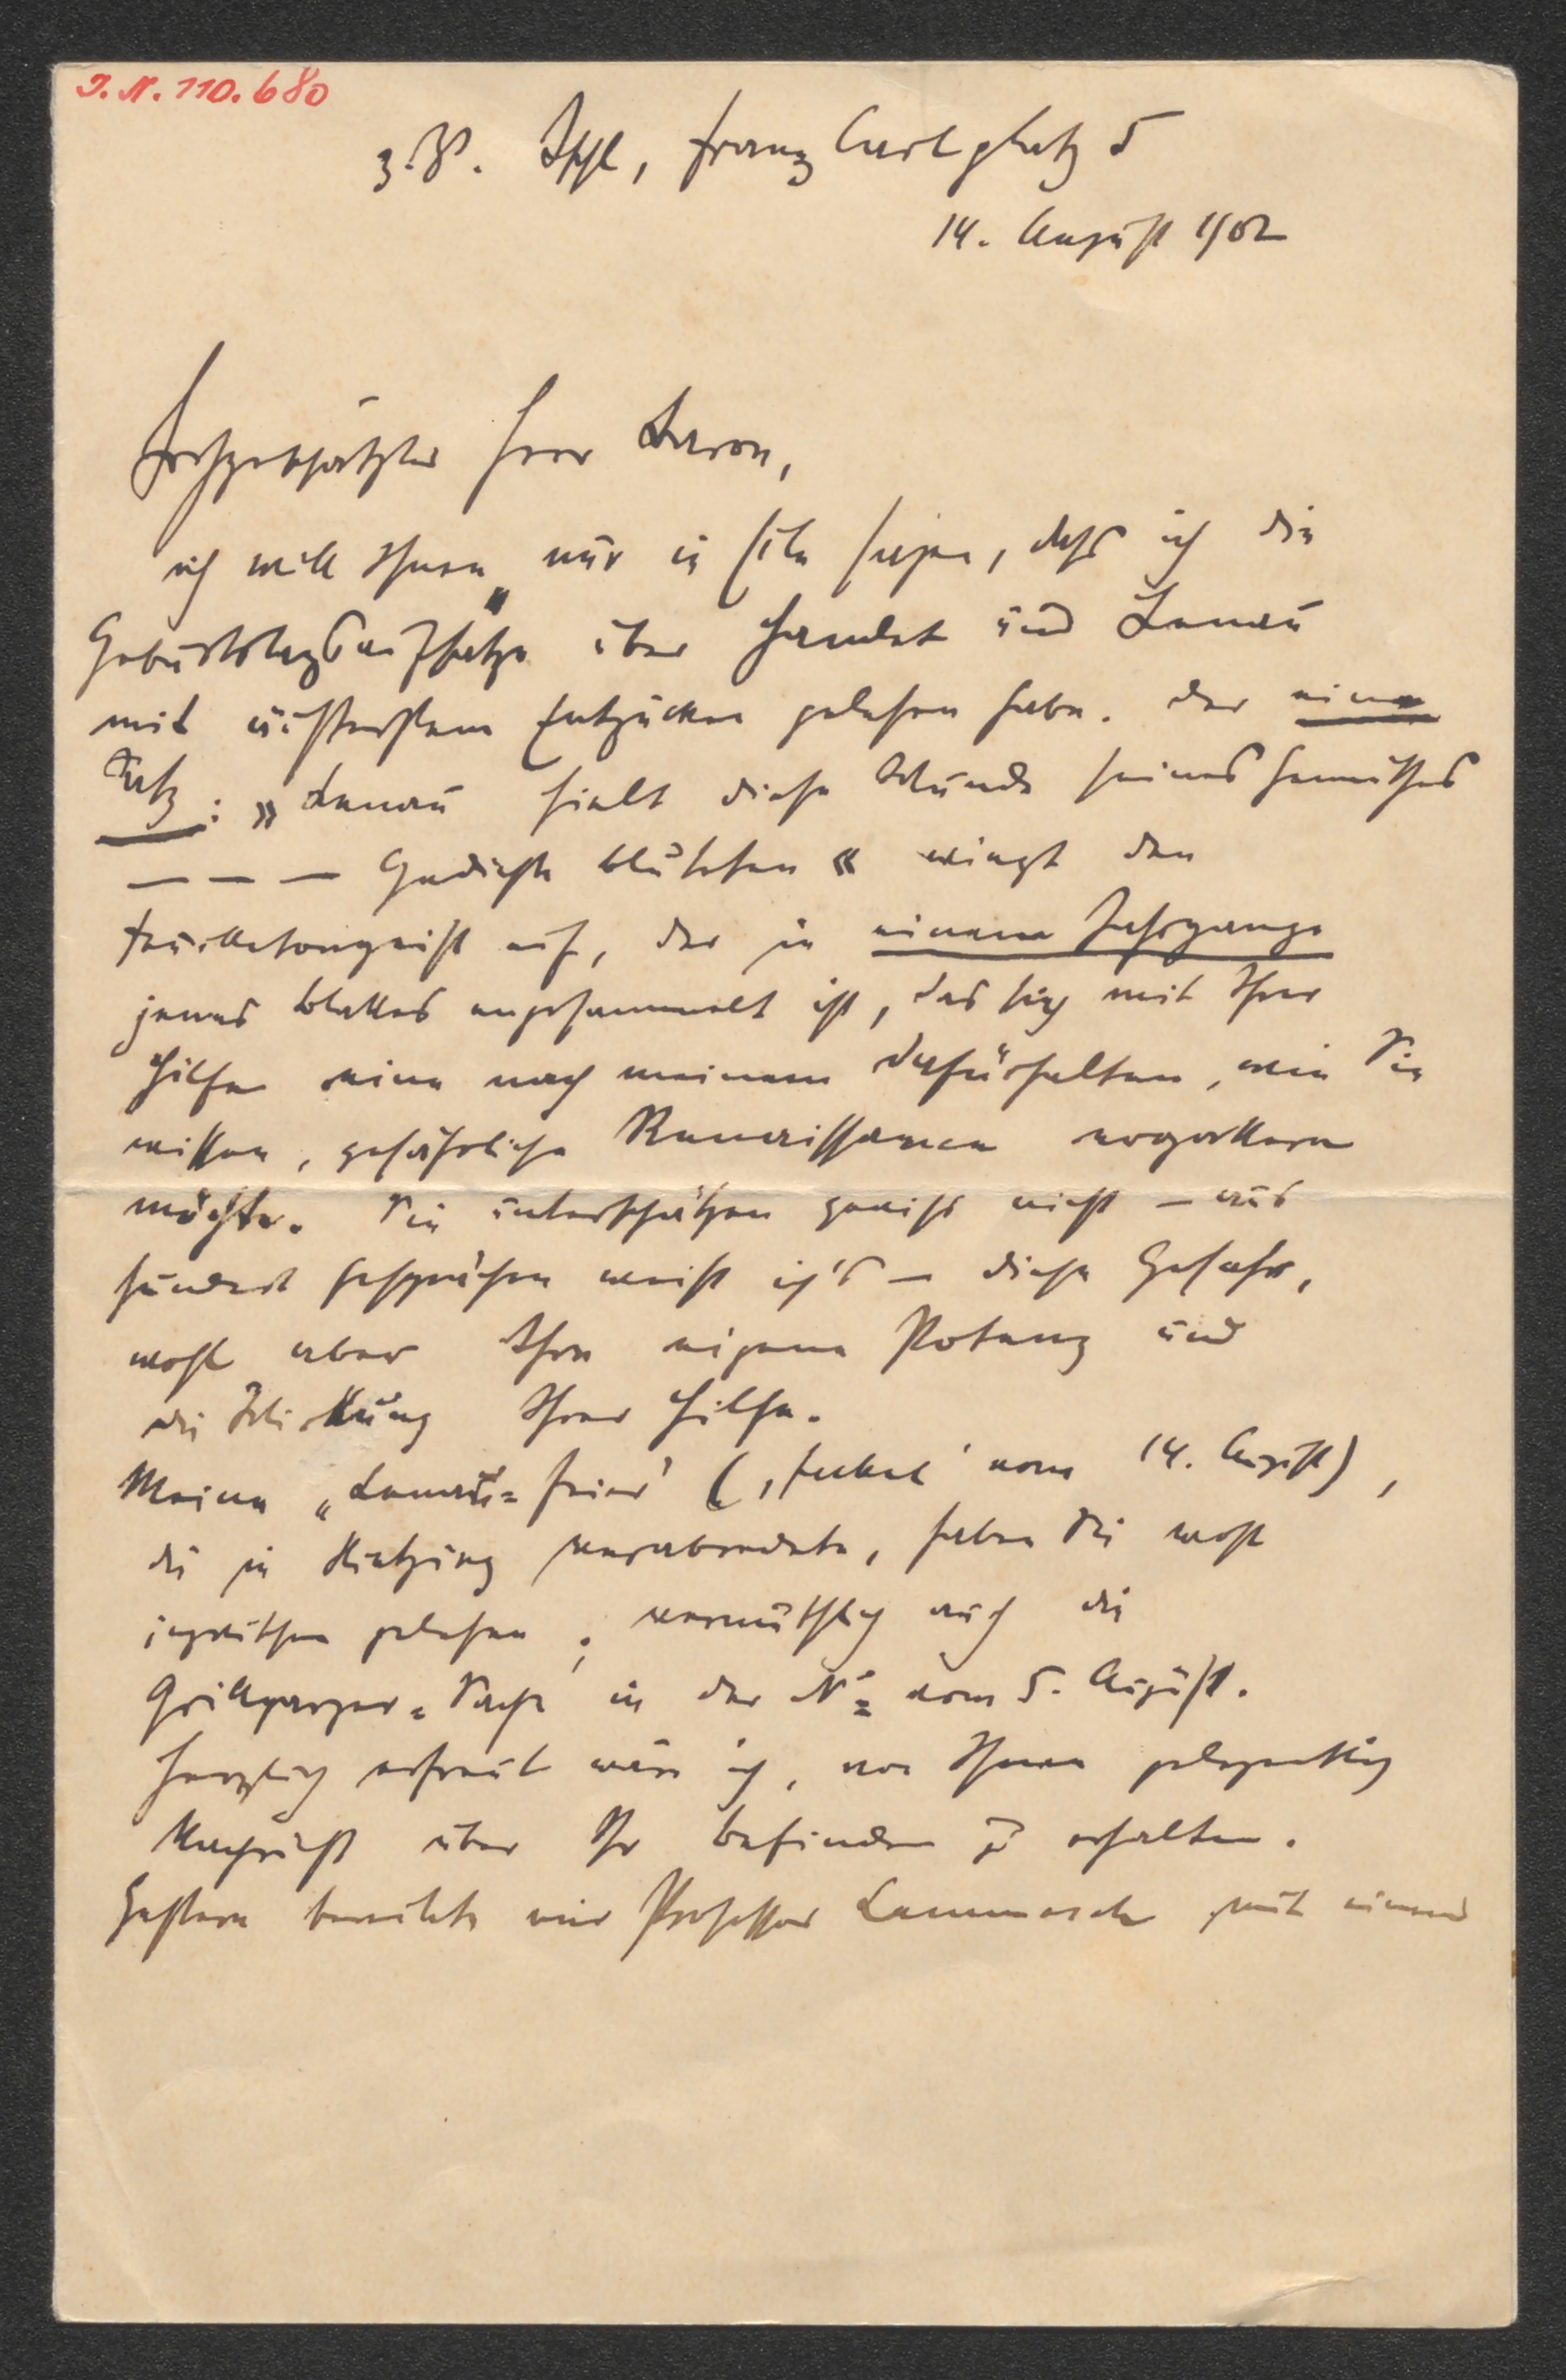 J. N. 110.680
z. Z. Ischl, Franz Carlplatz 5
14. August 1902
Hochgeschätzter Herr Baron,
ich will Ihnen nur in Eile sagen, dass ich die
Geburtstagsaufsätze über Hamlet und Lenau
mit äußerstem Entzücken gelesen habe. Der eine
Satz: » Lenau hielt diese Wunde seines Gemüthes
— — — Gedichte bluteten « wiegt den
Feuilletongeist auf, der in einem Jahrgange
jenes Blattes angesammelt ist, das sich mit Ihrer
Hilfe eine nach meinem Dafürhalten, wie Sie
wissen, gefährliche Renaissance ergattern
möchte. Sie unterschätzen gewiss nicht – aus
hundert Gesprächen weiß ich's – diese Gefahr,
wohl aber Ihre eigene Potenz und
die Wirkung Ihrer Hilfe.
Meine „Lenau=Feier' (‚Fackel' vom 14. August),
die in Hietzing verabredete, haben Sie wohl
inzwischen gelesen; vermuthlich auch die
Grillparzer=Sache in der Nr vom 5. August.
Herzlich erfreut wäre ich, von Ihnen gelegentlich
Nachricht über Ihr Befinden zu erhalten.
Gestern brachte mir Professor Lammasch mit einem